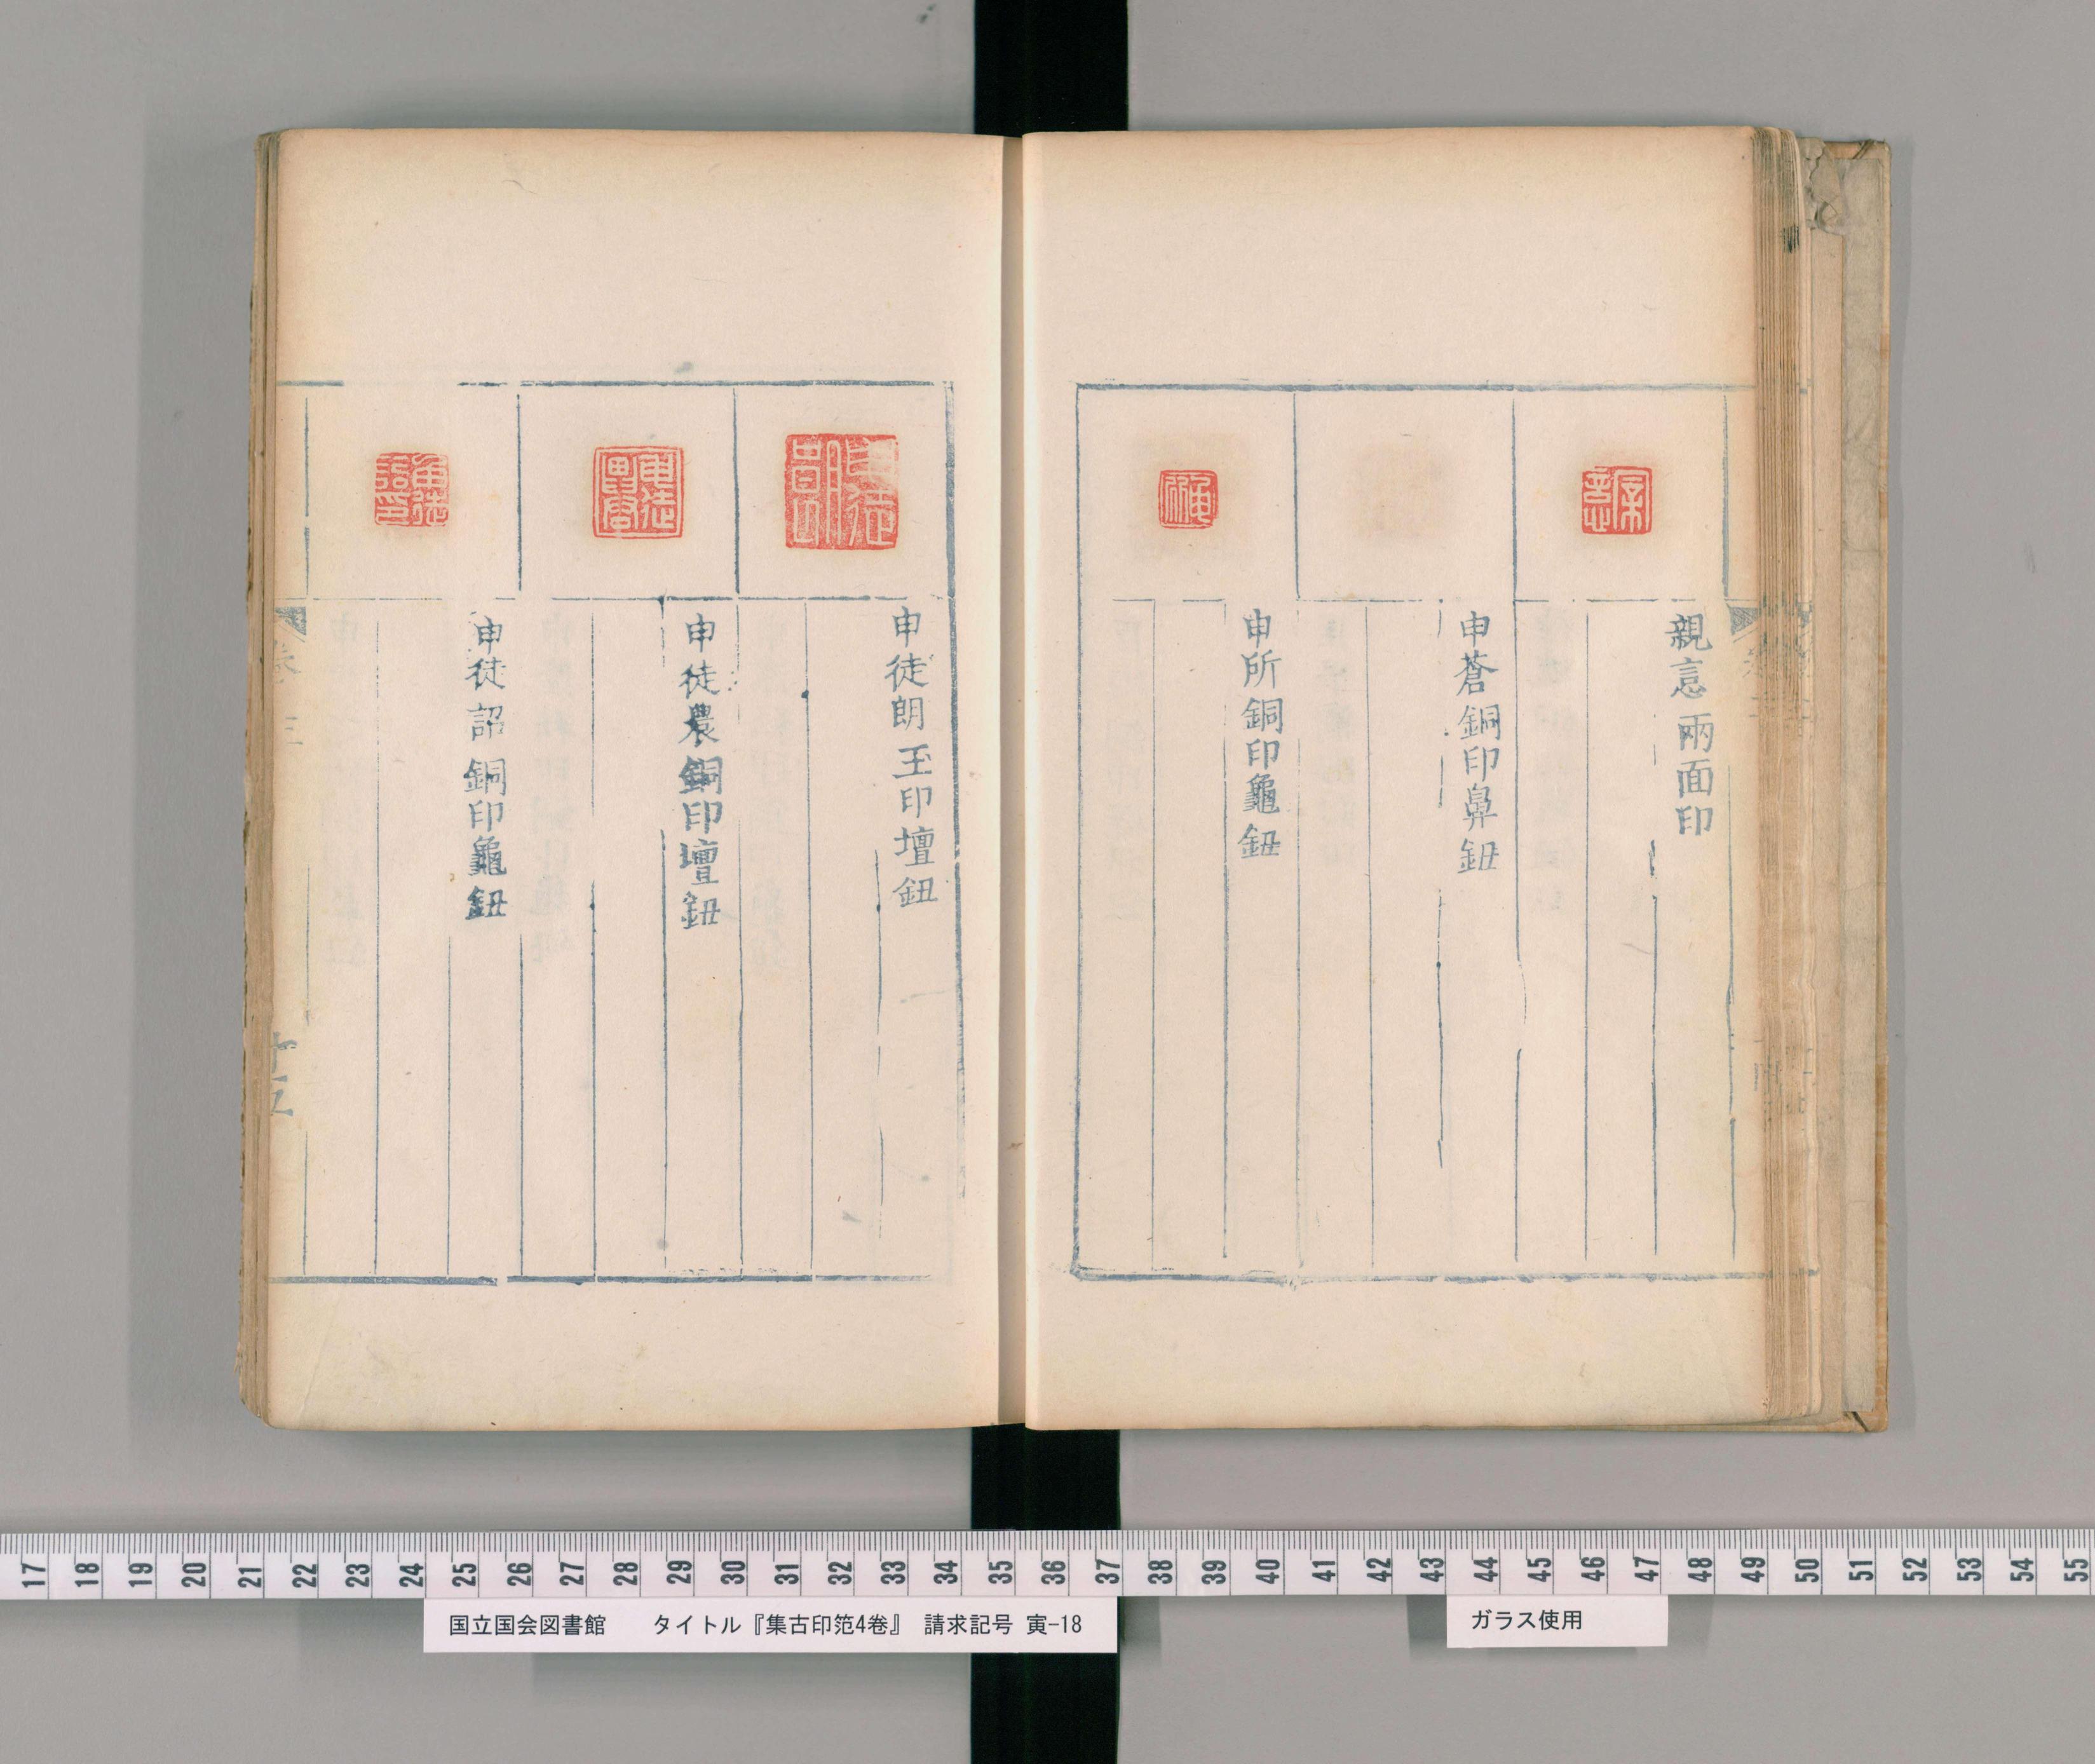 親意兩面印
申蒼銅印鼻鈕
申所銅印龜鈕
申徒朗玉印壇鈕
申徒農銅印壇鈕
申徒詔銅印龜鈕
卷三
十五
17 18 19 20 21 22 23 24 25 26 27 28 29 30 31 32 33 34 35 36 37 38 39 40 41 42 43 44 45 46 47 48 49 50 51 52 53 54 55
国立国会図書館 タイトル『集古印笵4巻』 請求記号 寅-18
ガラス使用